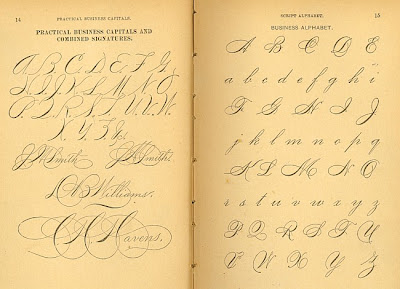 14 PRACTICAL BUSINESS CAPITALS.
PRACTICAL BUSINESS CAPITALS AND
COMBINED SIGNATURES.
A B C D E F G
H I J K L M N O
P Q R S T U V W
X Y Z &
J. H. Smith J. A. Smith
A. B. Williams.
C. H. Havens.
SCRIPT ALPHABET. 15
BUSINESS ALPHABET.
A B C D E
a b c d e f g h i
F G H I J
j k l m n o p q
K L M N O
r s t u v w x y z
P Q R S T U
V W X Y Z